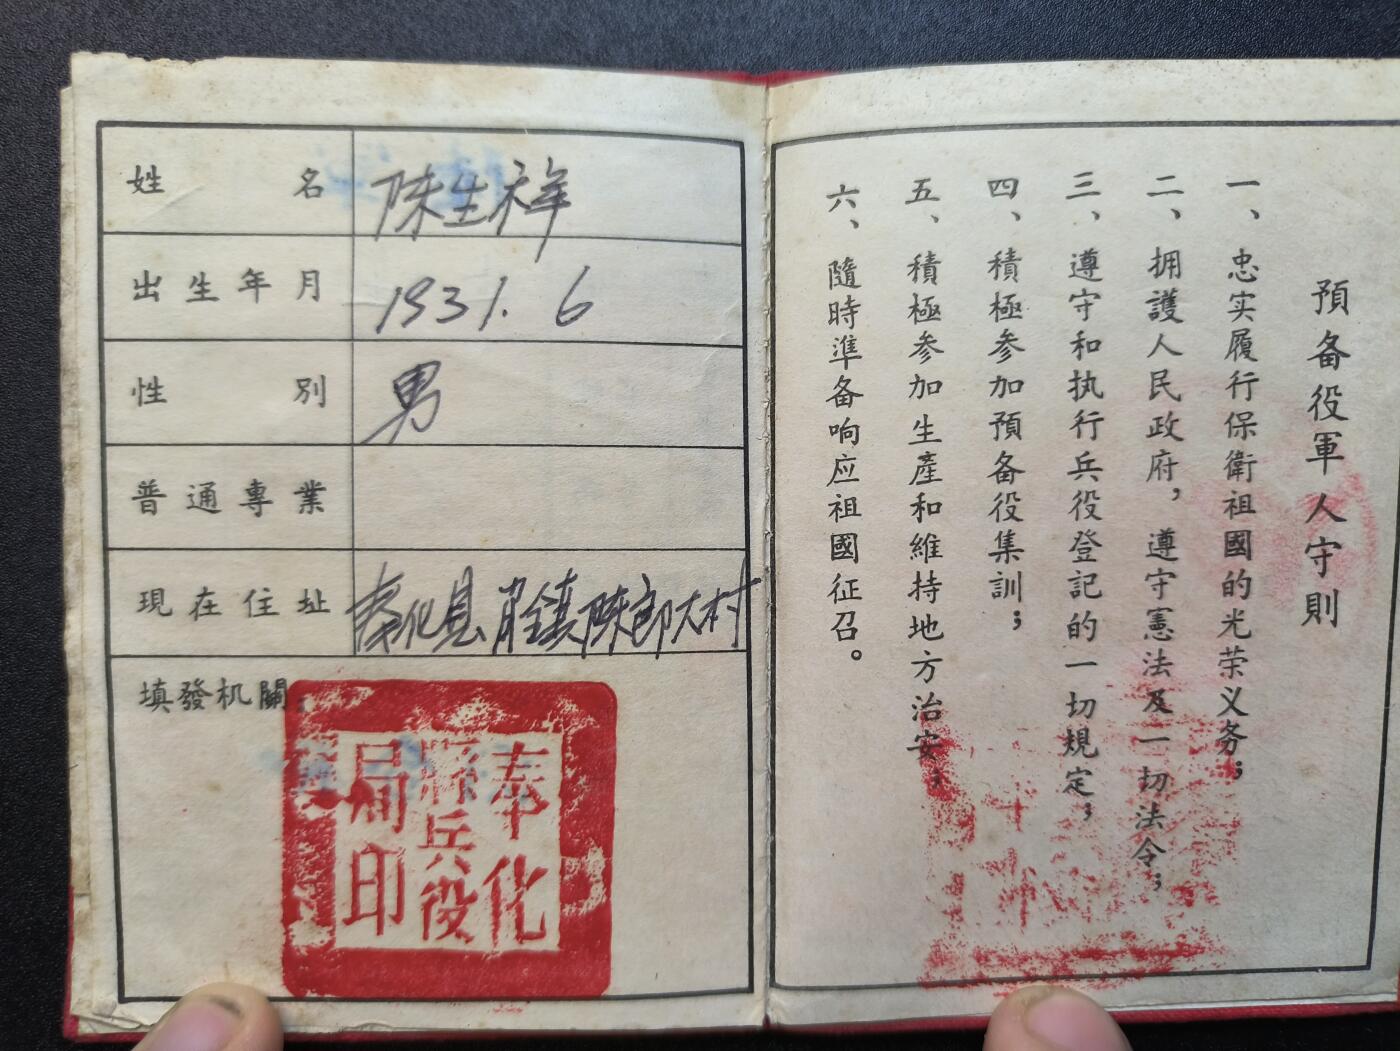 姓名 陳生祥
出生年月 1931.6
性別 男
普通專業
現在住址 奉化县 鎮陳郎大村
填發机關
奉化
縣兵役
局印
預备役軍人守則
一、忠实履行保衛祖國的光荣义务；
二、拥護人民政府，遵守憲法及一切法令；
三、遵守和执行兵役登記的一切規定；
四、積極参加預备役集訓；
五、積極参加生產和維持地方治安；
六、隨時準备响应祖國征召。